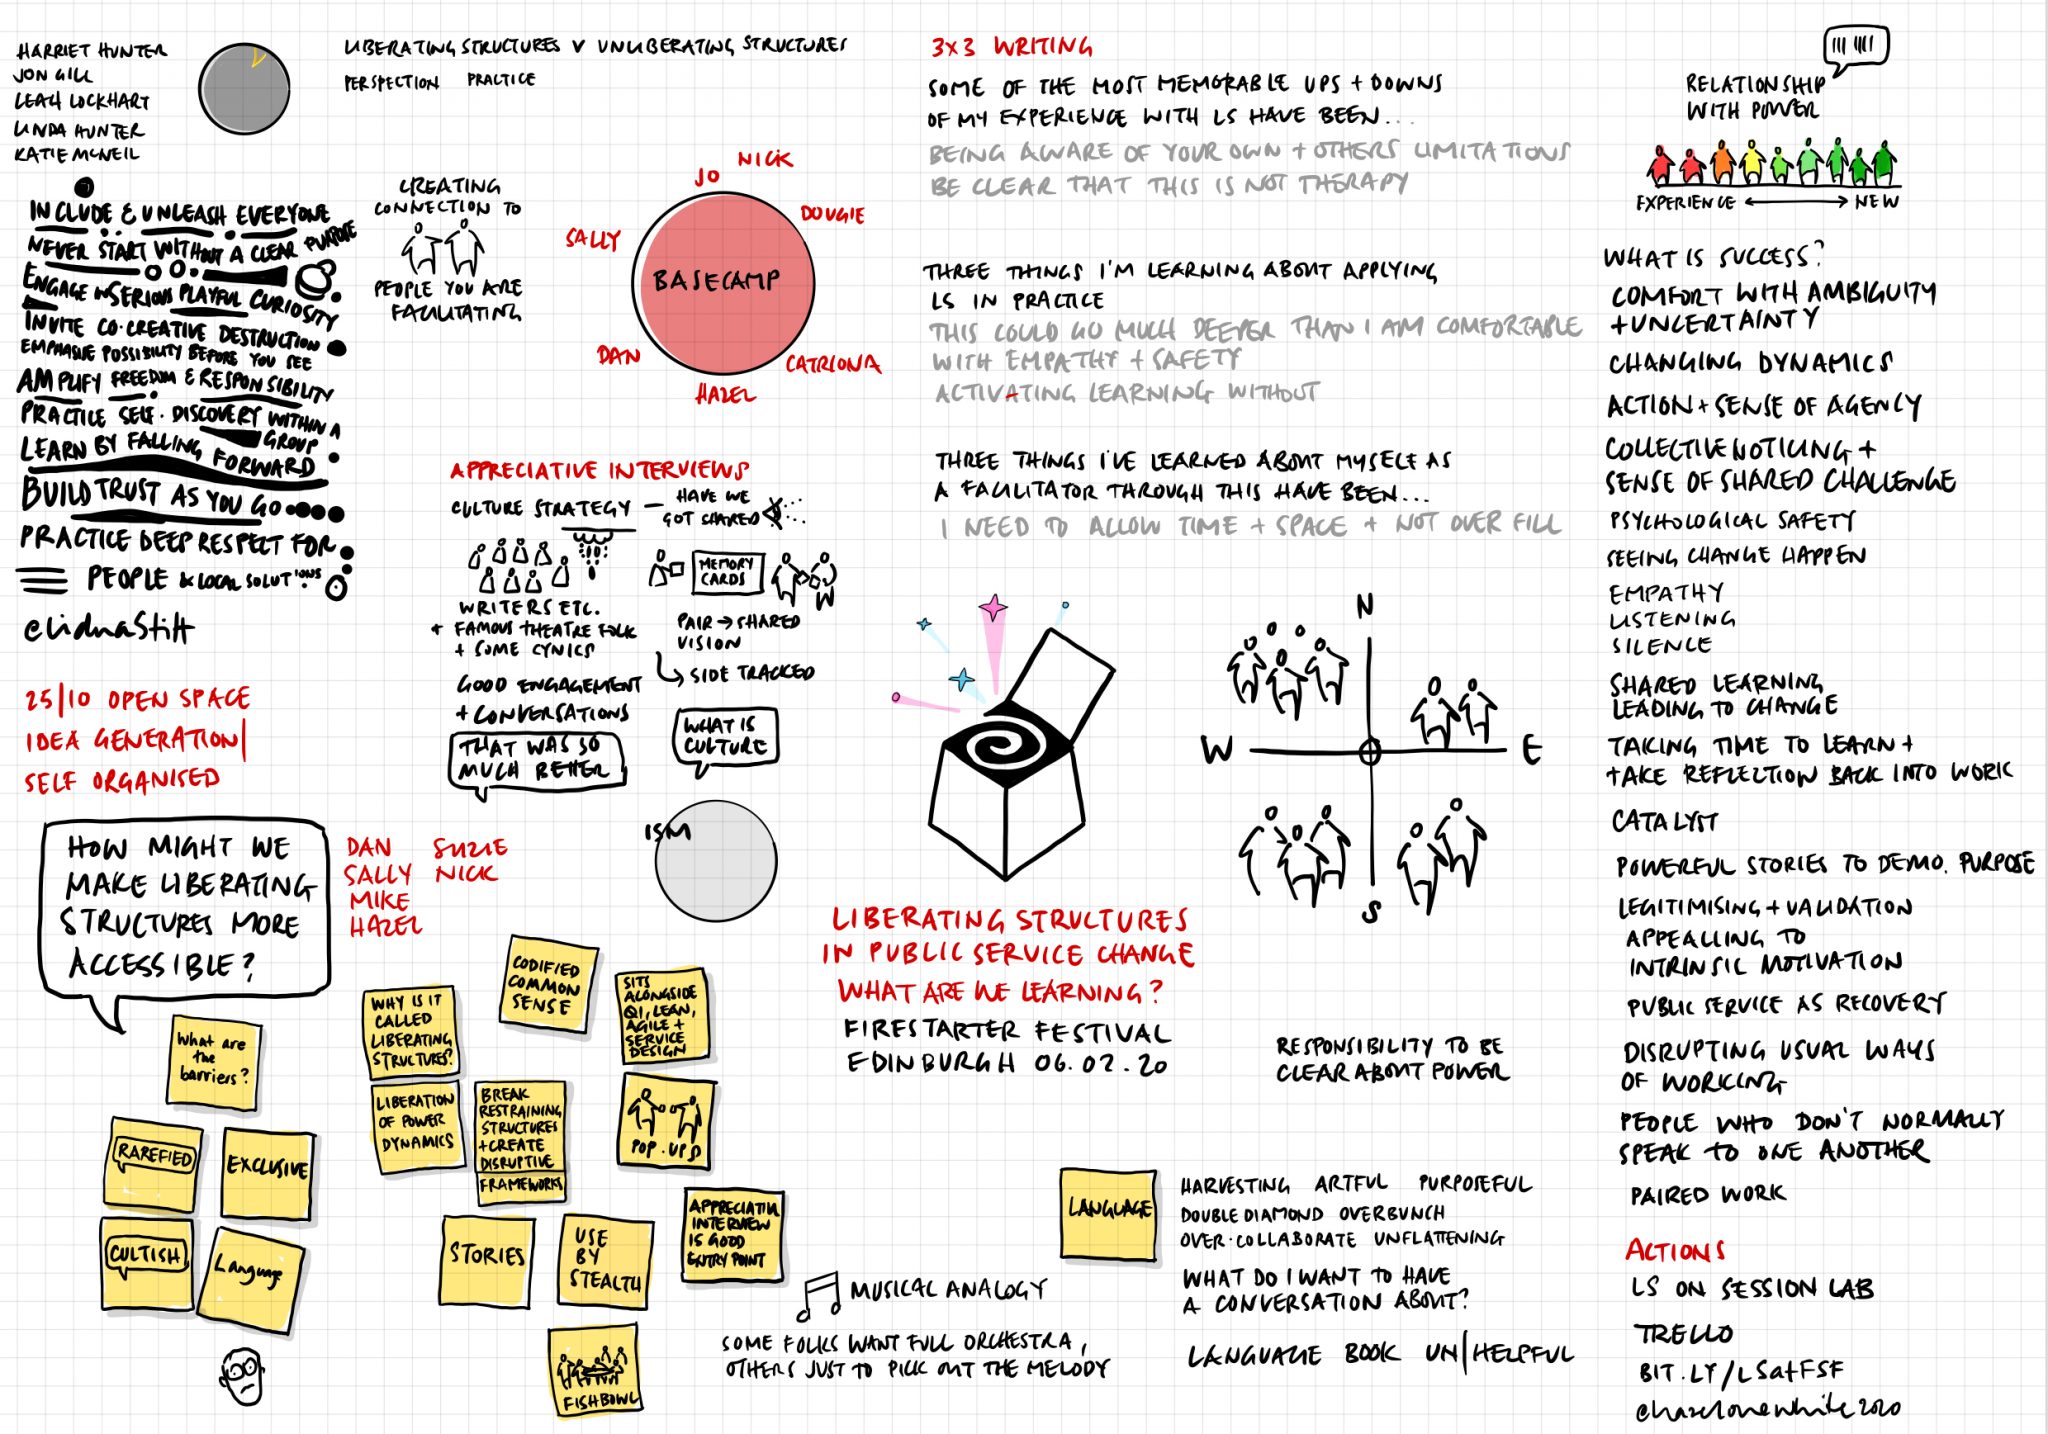 HARRIET HUNTER
JON GILL
LEAH LOCKHART
LINDA HUNTER
KATIE MCNEIL
LIBERATING STRUCTURES V UNLIBERATING STRUCTURES
PERSPECTION PRACTICE
INCLUDE & UNLEASH EVERYONE
NEVER START WITHOUT A CLEAR PURPOSE
ENGAGE IN SERIOUS PLAYFUL CURIOSITY
INVITE CO-CREATIVE DESTRUCTION
EMPHASISE POSSIBILITY BEFORE YOU SEE
AMPLIFY FREEDOM & RESPONSIBILITY
PRACTICE SELF-DISCOVERY WITHIN A
GROUP
LEARN BY FALLING FORWARD
BUILD TRUST AS YOU GO
PRACTICE DEEP RESPECT FOR
PEOPLE & LOCAL SOLUTIONS
CREATING
CONNECTION TO
PEOPLE YOU ARE
FACILITATING
JO
NICK
DOUGIE
SALLY
BASECAMP
DAN
CATRIONA
HAZEL
25/10 OPEN SPACE
IDEA GENERATION/
SELF ORGANISED
APPRECIATIVE INTERVIEWS
CULTURE STRATEGY – HAVE WE
GOT SHARED
MEMORY
CARDS
WRITERS ETC.
+ FAMOUS THEATRE FOLK
+ SOME CYNICS
PAIR → SHARED
VISION
SIDE TRACKED
GOOD ENGAGEMENT
+ CONVERSATIONS
THAT WAS SO
MUCH BETTER
WHAT IS
CULTURE
HOW MIGHT WE
MAKE LIBERATING
STRUCTURES MORE
ACCESSIBLE?
DAN SUZIE
SALLY NICK
MIKE
HAZEL
ISM
What are
the
barriers?
RAREFIED
EXCLUSIVE
CULTISH
Language
WHY IS IT
CALLED
LIBERATING
STRUCTURES?
CODIFIED
COMMON
SENSE
SITS
ALONGSIDE
QI, LEAN,
AGILE +
SERVICE
DESIGN
LIBERATION
OF POWER
DYNAMICS
BREAK
RESTRAINING
STRUCTURES
+ CREATE
DISRUPTIVE
FRAMEWORKS
POP-UPS
STORIES
USE
BY
STEALTH
APPRECIATIVE
INTERVIEW
IS GOOD
ENTRY POINT
FISHBOWL
MUSICAL ANALOGY
SOME FOLKS WANT FULL ORCHESTRA,
OTHERS JUST TO PICK OUT THE MELODY
3x3 WRITING
SOME OF THE MOST MEMORABLE UPS + DOWNS
OF MY EXPERIENCE WITH LS HAVE BEEN...
BEING AWARE OF YOUR OWN + OTHERS LIMITATIONS
BE CLEAR THAT THIS IS NOT THERAPY
THREE THINGS I'M LEARNING ABOUT APPLYING
LS IN PRACTICE
THIS COULD GO MUCH DEEPER THAN I AM COMFORTABLE
WITH EMPATHY + SAFETY
ACTIVATING LEARNING WITHOUT
THREE THINGS I'VE LEARNED ABOUT MYSELF AS
A FACILITATOR THROUGH THIS HAVE BEEN...
I NEED TO ALLOW TIME + SPACE + NOT OVER FILL
N
W
E
S
LIBERATING STRUCTURES
IN PUBLIC SERVICE CHANGE
WHAT ARE WE LEARNING?
FIRESTARTER FESTIVAL
EDINBURGH 06.02.20
RESPONSIBILITY TO BE
CLEAR ABOUT POWER
LANGUAGE
HARVESTING ARTFUL PURPOSEFUL
DOUBLE DIAMOND OVERBUNCH
OVER-COLLABORATE UNFLATTENING
WHAT DO I WANT TO HAVE
A CONVERSATION ABOUT?
LANGUAGE BOOK UN/HELPFUL
RELATIONSHIP
WITH POWER
EXPERIENCE ↔ NEW
WHAT IS SUCCESS?
COMFORT WITH AMBIGUITY
+ UNCERTAINTY
CHANGING DYNAMICS
ACTION + SENSE OF AGENCY
COLLECTIVE NOTICING +
SENSE OF SHARED CHALLENGE
PSYCHOLOGICAL SAFETY
SEEING CHANGE HAPPEN
EMPATHY
LISTENING
SILENCE
SHARED LEARNING
LEADING TO CHANGE
TAKING TIME TO LEARN +
TAKE REFLECTION BACK INTO WORK
CATALYST
POWERFUL STORIES TO DEMO. PURPOSE
LEGITIMISING + VALIDATION
APPEALLING TO
INTRINSIC MOTIVATION
PUBLIC SERVICE AS RECOVERY
DISRUPTING USUAL WAYS
OF WORKING
PEOPLE WHO DON'T NORMALLY
SPEAK TO ONE ANOTHER
PAIRED WORK
ACTIONS
LS ON SESSION LAB
TRELLO
BIT.LY/LSatFSF
@hazelonewhite2020